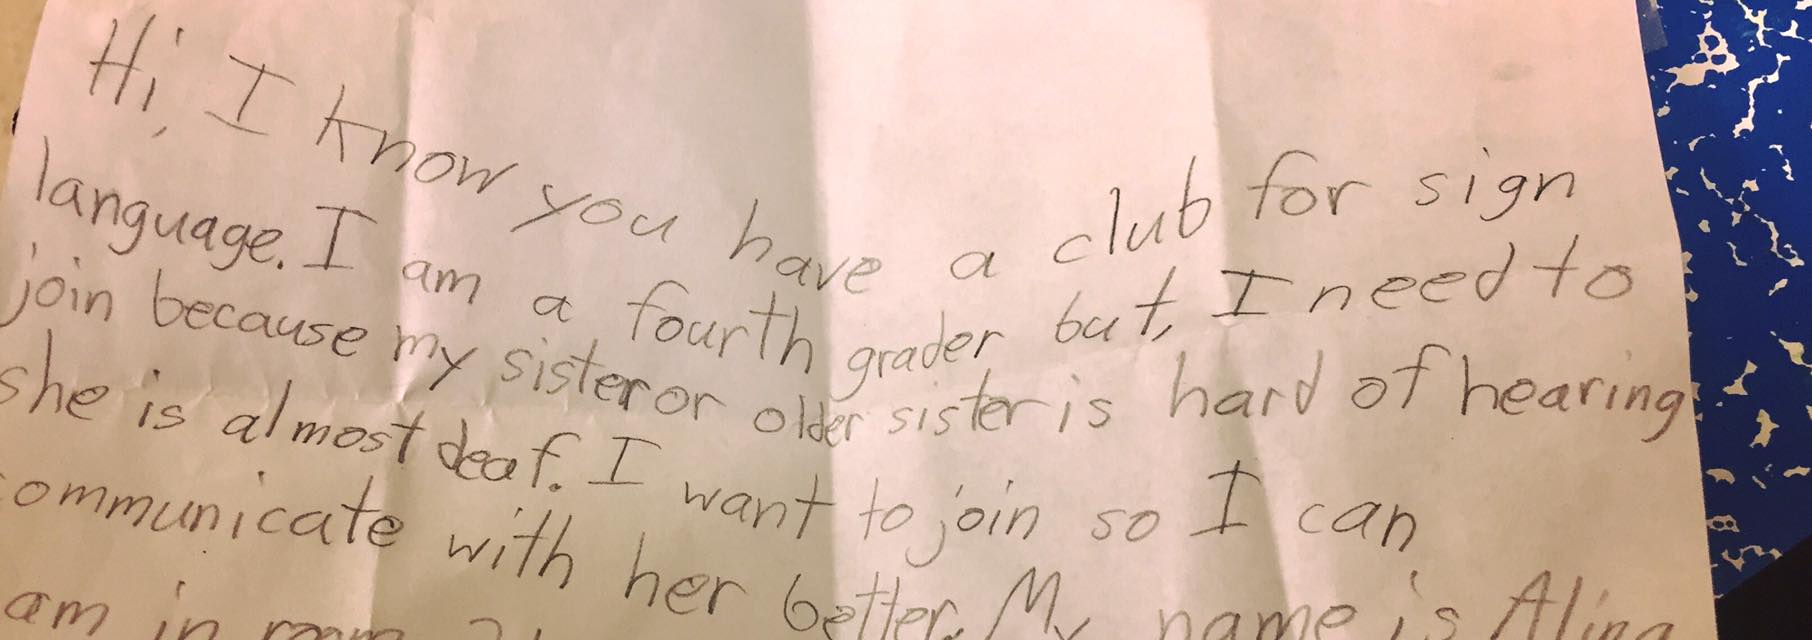 Hi, I know you have a club for sign
language. I am a fourth grader but, I need to
join because my sister or older sister is hard of hearing
she is almost deaf. I want to join so I can
communicate with her better. My name is Alina
am in room